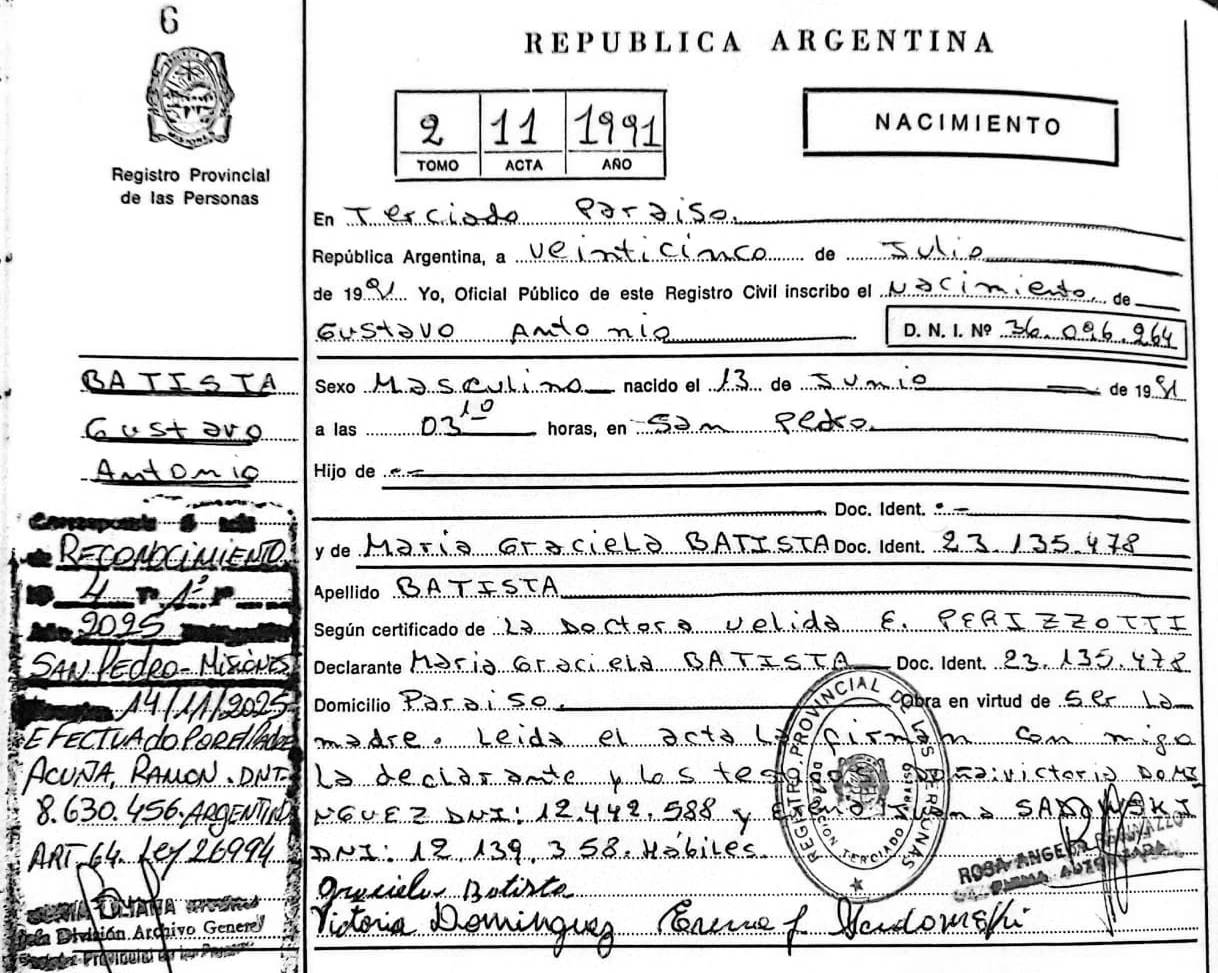 6
REPUBLICA ARGENTINA
2 11 1991
TOMO ACTA AÑO
NACIMIENTO
Registro Provincial
de las Personas
En Terciado Paraiso.
República Argentina, a veinticinco de Julio
de 1991 Yo, Oficial Público de este Registro Civil inscribo el Nacimiento de
Gustavo Antonio D. N. I. Nº 36.096.264
Sexo Masculino nacido el 13 de Junio de 1991
a las 03 10 horas, en San Pedro.
Hijo de
Doc. Ident.
y de Maria Graciela BATISTA Doc. Ident. 23.135.478
Apellido BATISTA
Según certificado de La Doctora Velida E. PERIZZOTTI
Declarante Maria Graciela BATISTA Doc. Ident. 23.135.478
Domicilio Paraiso. Obra en virtud de Ser La
madre. Leida el acta La firman con migo
La declarante y los Victoria DOMI
NGUEZ DNI: 12.442.588 y SADOWSKI
DNI: 12.139.358. Hábiles.
Graciela Batista
Victoria Dominguez
BATISTA
Gustavo
Antonio
Corresponde
RECONOCIMIENTO
4 Tº 1º
Año 2025
SAN PEDRO - MISIONES
14/11/2025
EFECTUADO POR EL PADRE
ACUÑA, RAMON. DNI.
8.630.456. ARGENTINO
ART. 64. Ley 26994
LILIANA
División Archivo General
REGISTRO PROVINCIAL DE LAS PERSONAS
TERCIADO PARAISO
ROSA ANGELA
FIRMA AUTORIZADA